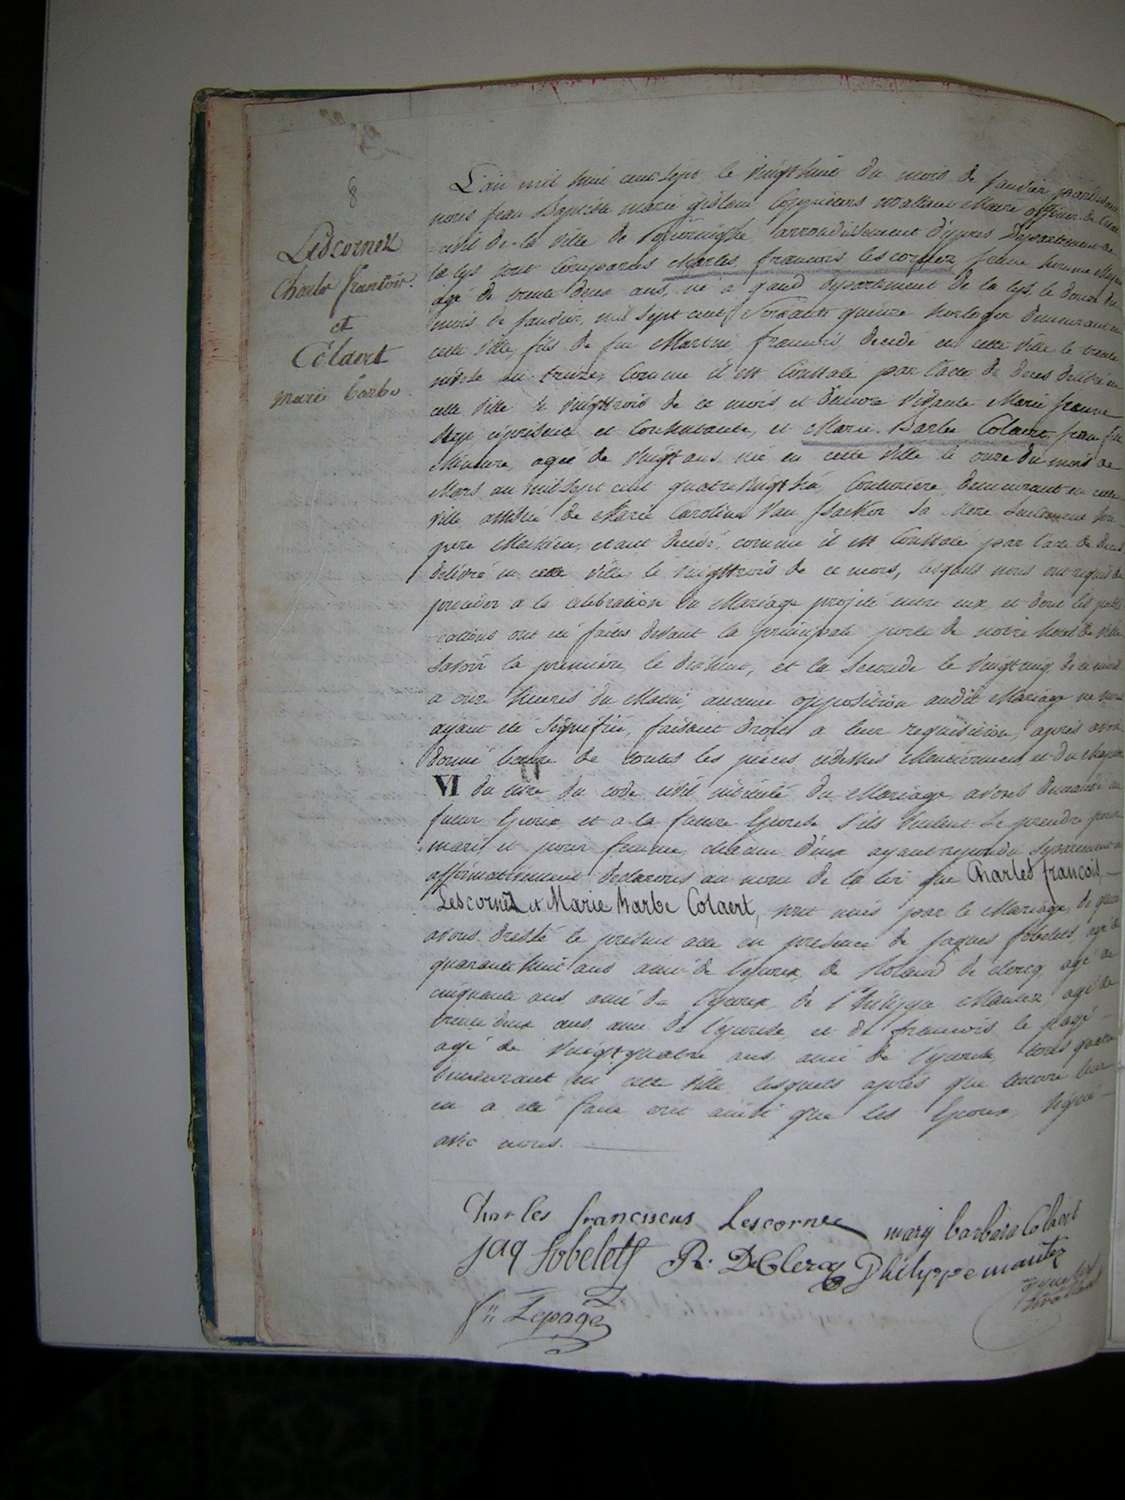 8
Lescornez
Charles francois
et
Colaert
marie barbe
L'an mil huit cent sept le vingt huit du mois de janvier pardevant
nous jean Baptiste marie gislein Maire officier de l'etat
civil de la ville de arrondissement d'ypres departement de
la lys sont comparus Charles francois lescornez jeune homme
agé de trente deux ans, né a gand departement de la lys, le douze du
mois de janvier, mil sept cent soixante quinze horloger demeurant en
cette ville fils de feu Martin francois decedé en cette ville le trente
an treize, comme il est constaté par l'acte de deces delivré en
cette ville le vingt trois de ce mois et d'encore vivante Marie jeanne
cipresente et consentante, et Marie Barbe Colaert jeune fille
Mineure agée de vingt ans née en cette ville le onze du mois de
Mars an mil sept cent quatre vingt six, couturiere, demeurant en cette
ville assistée de Marie Caroline Van sa Mere son
pere Mathieu etant decedé, comme il est constaté par l'acte de deces
delivré en cette ville le vingt trois de ce mois, lesquels nous ont requis de
proceder a la celebration du Mariage projeté entre eux et dont les publi-
cations ont été faites devant la principale porte de notre hotel de ville
savoir la premiere le dix huit, et la seconde le vingt cinq de ce mois
a onze heures du Matin aucune opposition audit Mariage ne nous
ayant été signifiée, faisant droit a leur requisition, apres avoir
donné lecture de toutes les pieces cidessus Mentionnées et du chapitre
VI du titre du code civil intitulé du Mariage avons demandé au
futur Epoux et a la future Epouse s'ils veulent se prendre pour
mari et pour femme chacun d'eux ayant repondu separement et
affirmativement declarons au nom de la loi que Charles francois
Lescornez et Marie barbe Colaert, sont unis par le Mariage, de quoi
avons dressé le present acte en presence de jaques sobelets agé de
quarante huit ans ami de l'epoux, de Roland de clercq agé de
cinquante ans ami de l'epoux, de Philippe Mantez agé de
trente deux ans ami de l'epouse, et de francois le page
agé de vingt quatre ans ami de l'epouse tous quatre
demeurant en cette ville lesquels apres que lecture leur
en a été faite ont ainsi que les Epoux signé
avec nous.
Charles franciscus Lescornez mary barbara Colaert
jaq Sobelets R: De Clercq Philippe mantez
fr: Lepage